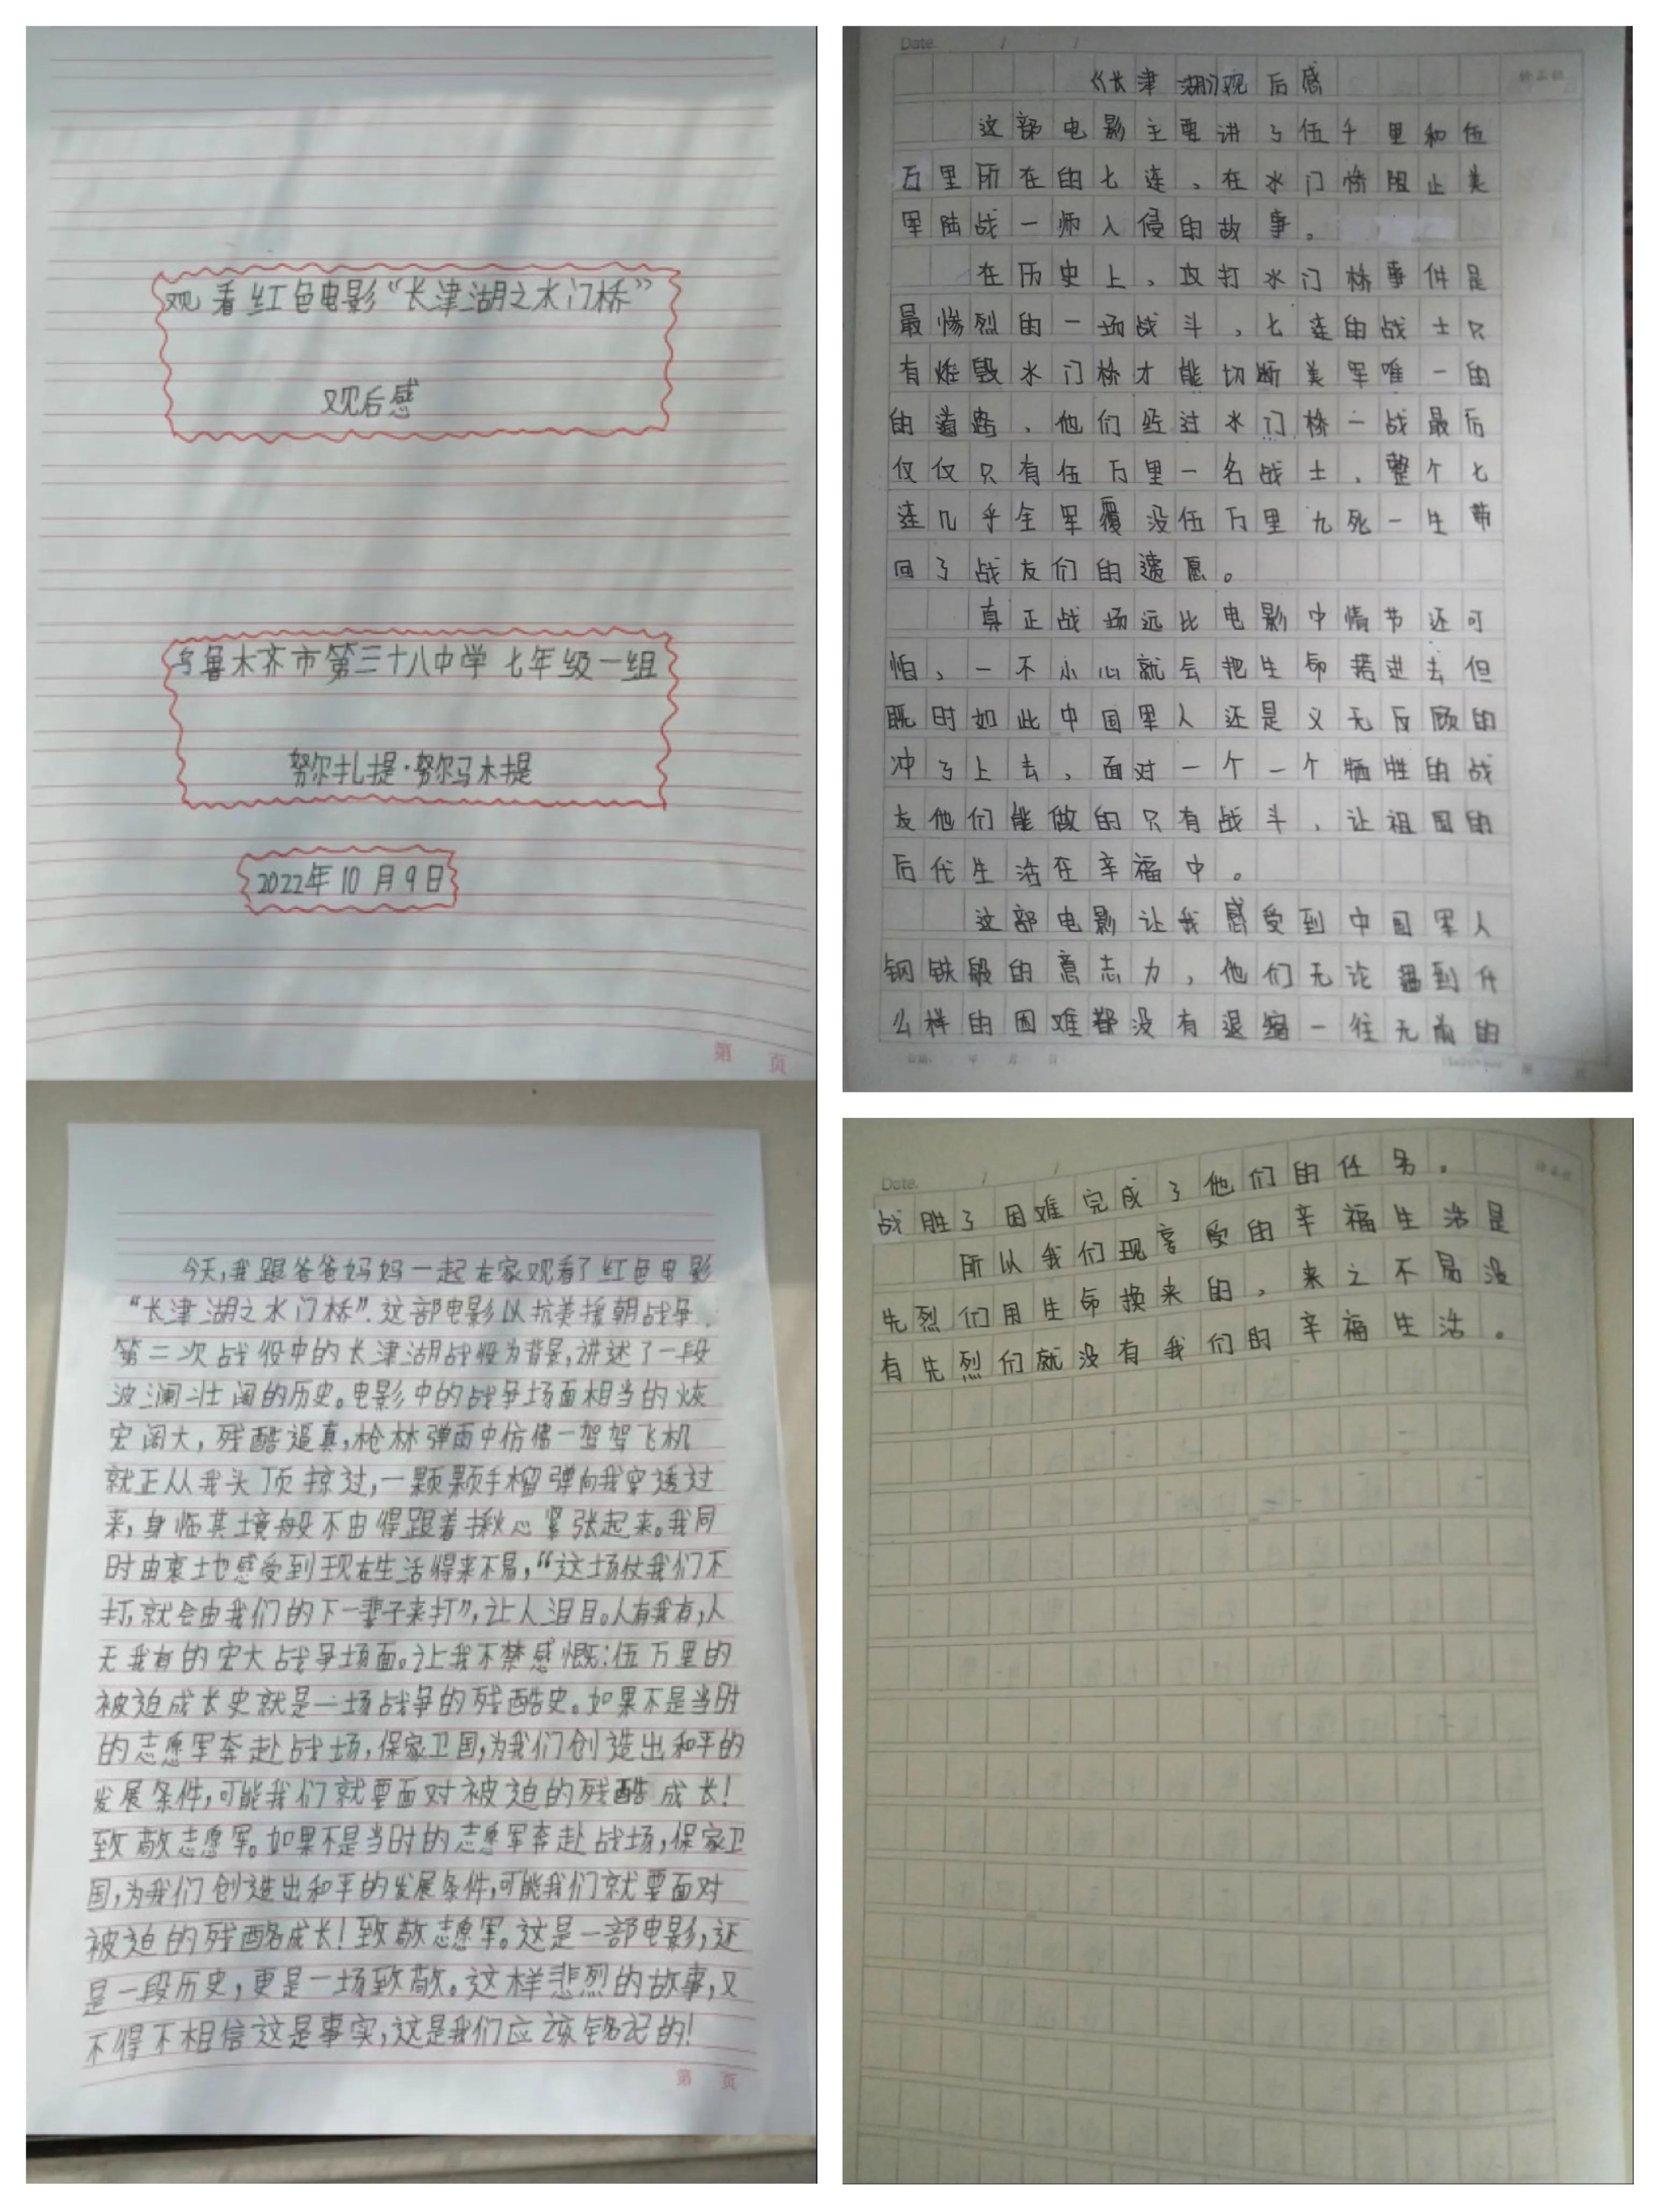 观看红色电影“长津湖之水门桥”
观后感
乌鲁木齐市第三十八中学 七年级一组
努尔扎提·努尔马木提
2022年10月9日
第 页
今天,我跟爸爸妈妈一起在家观看了红色电影
“长津湖之水门桥”.这部电影以抗美援朝战争
第二次战役中的长津湖战役为背景,讲述了一段
波澜壮阔的历史。电影中的战争场面相当的恢
宏阔大,残酷逼真,枪林弹雨中仿佛一驾驾飞机
就正从我头顶掠过,一颗颗手榴弹向我穿透过
来,身临其境般不由得跟着揪心紧张起来。我同
时由衷地感受到现在生活得来不易,“这场仗我们不
打,就会由我们的下一辈子来打”,让人泪目。人有我有,人
无我有的宏大战争场面。让我不禁感慨:伍万里的
被迫成长史就是一场战争的残酷史。如果不是当时
的志愿军奔赴战场,保家卫国,为我们创造出和平的
发展条件,可能我们就要面对被迫的残酷成长!
致敬志愿军。如果不是当时的志愿军奔赴战场,保家卫
国,为我们创造出和平的发展条件,可能我们就要面对
被迫的残酷成长!致敬志愿军。这是一部电影,还
是一段历史,更是一场致敬。这样悲烈的故事,又
不得不相信这是事实,这是我们应该铭记的!
第 页
Date. / /
《长津湖》观后感
这部电影主要讲了伍千里和伍
万里所在的七连,在水门桥阻止美
军陆战一师入侵的故事。
在历史上,攻打水门桥事件是
最惨烈的一场战斗,七连的战士只
有炸毁水门桥才能切断美军唯一的
的道路,他们经过水门桥一战最后
仅仅只有伍万里一名战士,整个七
连几乎全军覆没伍万里九死一生带
回了战友们的遗愿。
真正战场远比电影中情节还可
怕,一不小心就会把生命搭进去但
既时如此中国军人还是义无反顾的
冲了上去,面对一个一个牺牲的战
友他们能做的只有战斗,让祖国的
后代生活在幸福中。
这部电影让我感受到中国军人
钢铁般的意志力,他们无论遇到什
么样的困难都没有退缩一往无前的
Date. / /
战胜了困难完成了他们的任务。
所以我们现享受的幸福生活是
先烈们用生命换来的,来之不易没
有先烈们就没有我们的幸福生活。